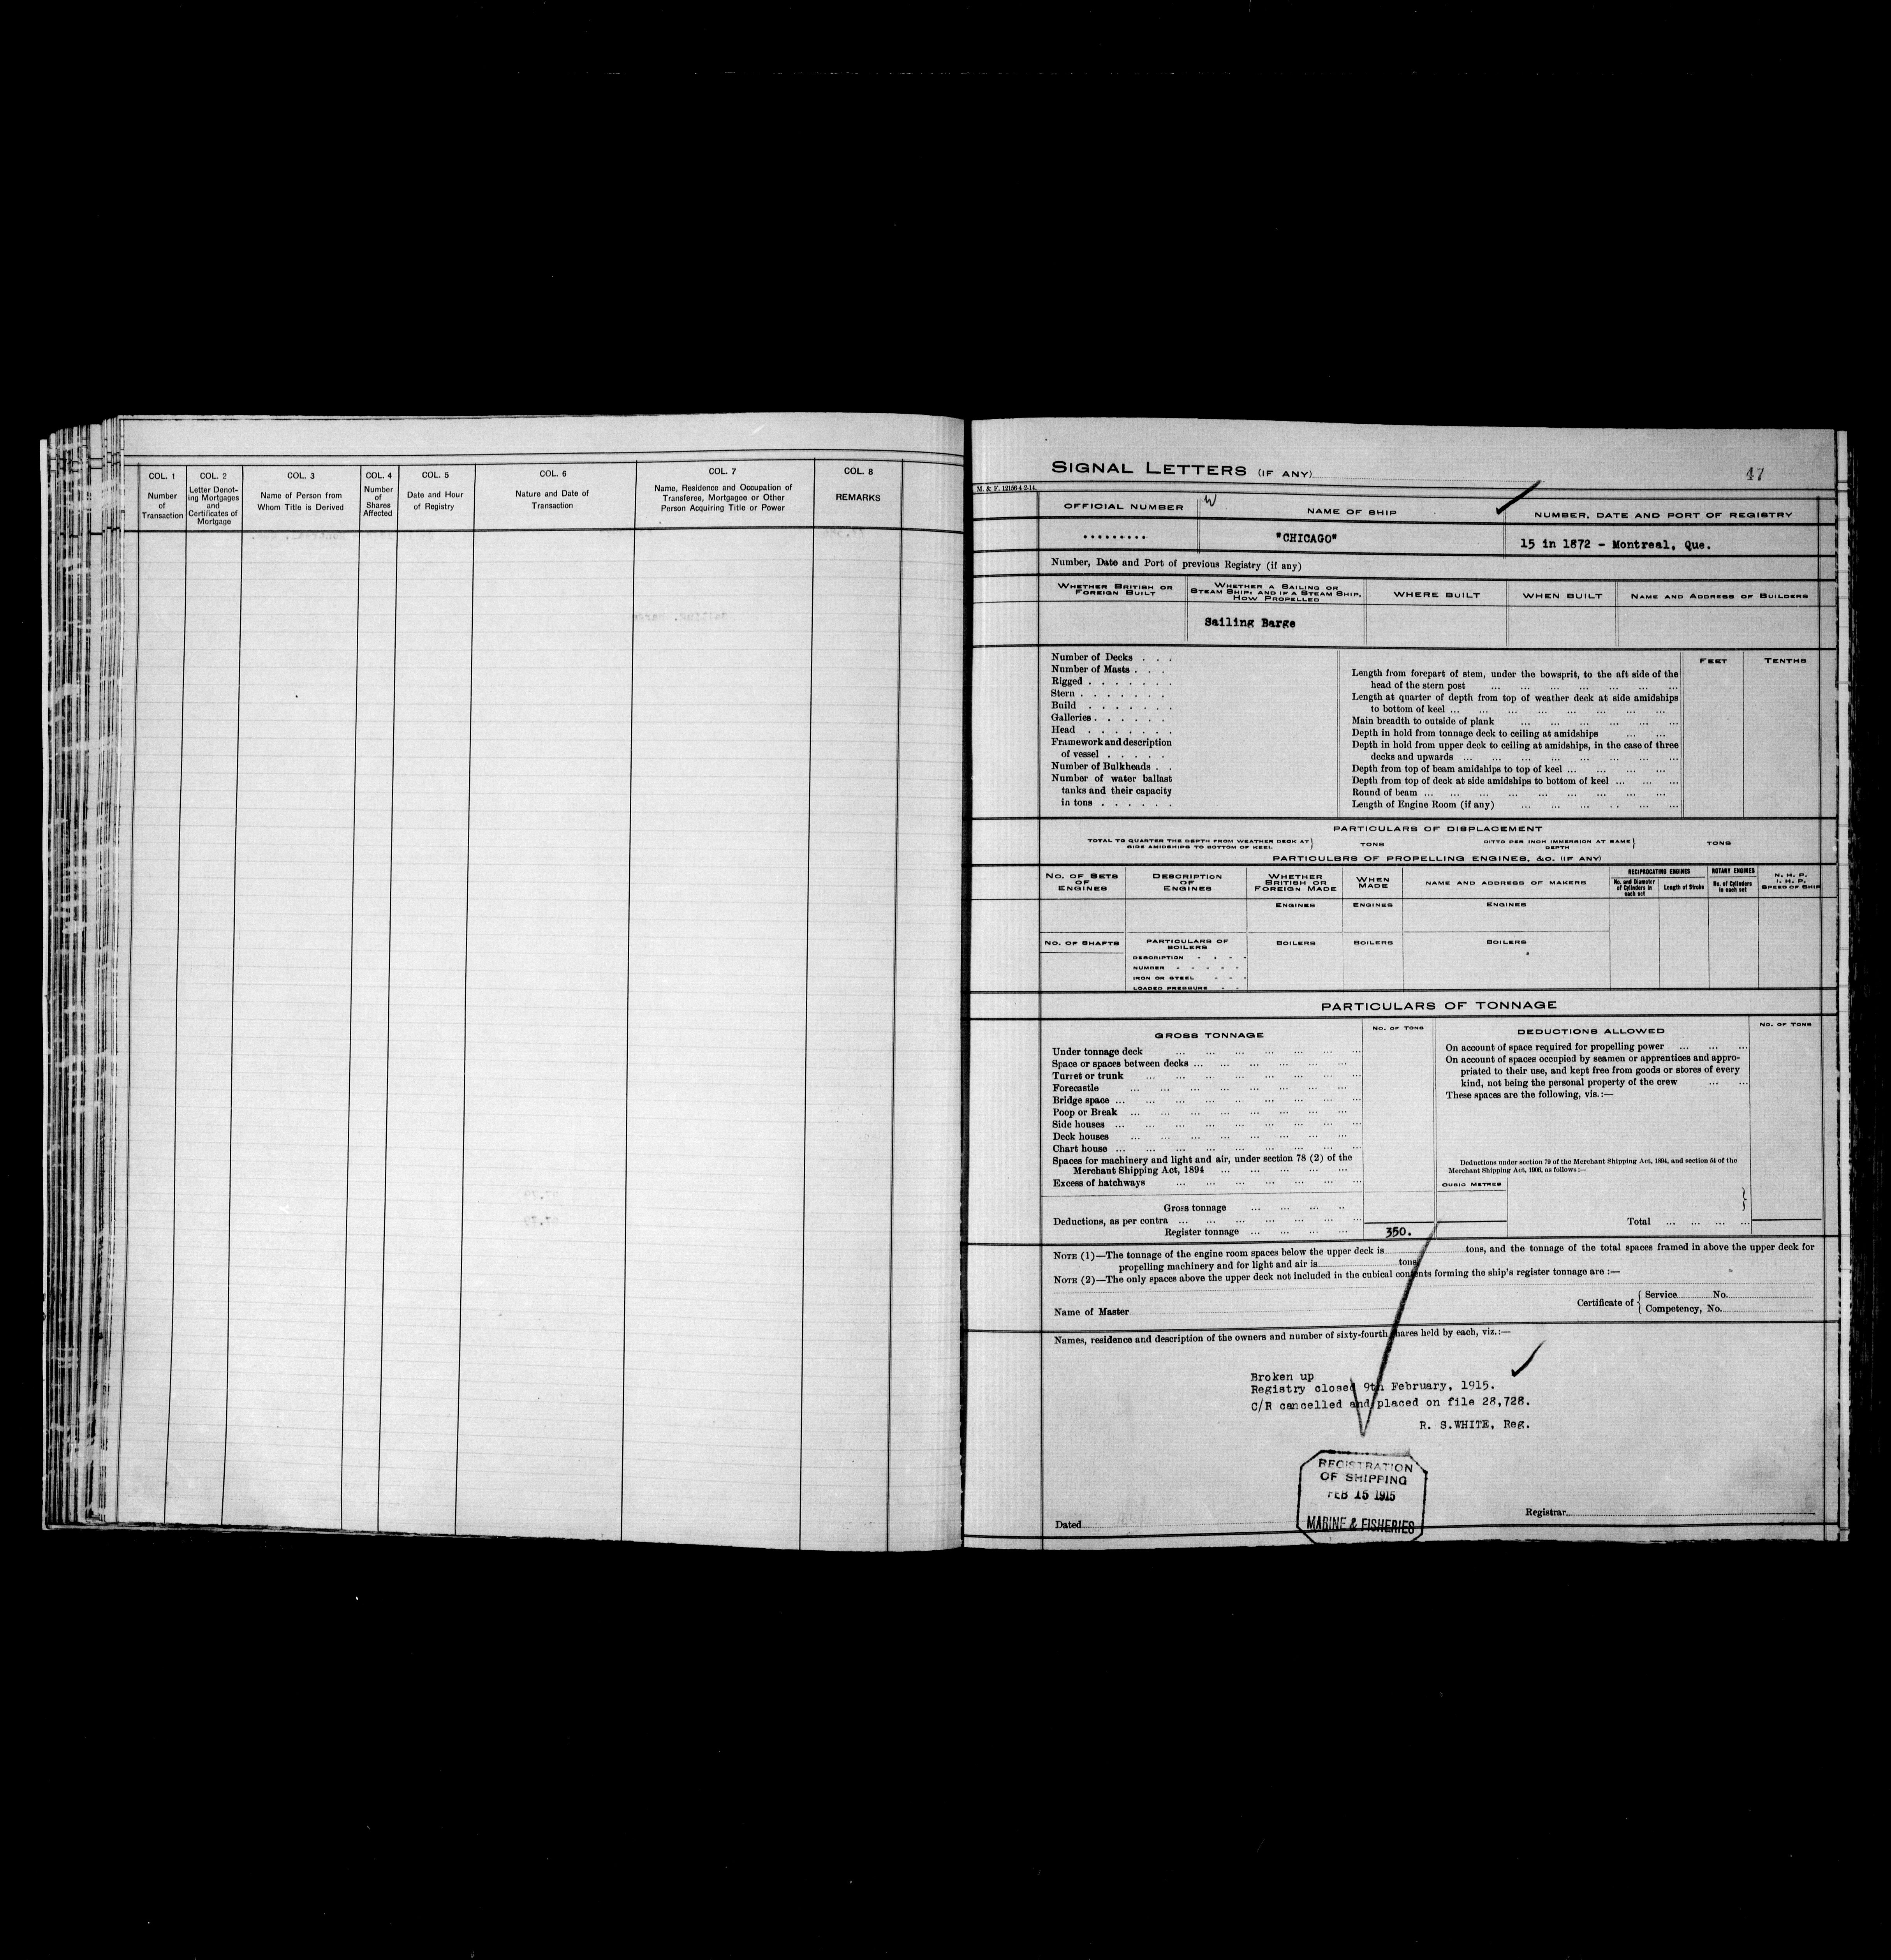 COL. 1
Number
of
Transaction
COL. 2
Letter Denot-
ing Mortgages
and
Certificates of
Mortgage
COL. 3
Name of Person from
Whom Title is Derived
COL. 4
Number
of
Shares
Affected
COL. 5
Date and Hour
of Registry
COL. 6
Nature and Date of
Transaction
COL. 7
Name, Residence and Occupation of
Transferee, Mortgagee or Other
Person Acquiring Title or Power
COL. 8
REMARKS
SIGNAL LETTERS (IF ANY)
47
M. & F. 12156-4 2-14.
OFFICIAL NUMBER
W
NAME OF SHIP
NUMBER, DATE AND PORT OF REGISTRY
.........
"CHICAGO"
15 in 1872 - Montreal, Que.
Number, Date and Port of previous Registry (if any)
WHETHER BRITISH OR
FOREIGN BUILT
WHETHER A SAILING OR
STEAM SHIP; AND IF A STEAM SHIP,
HOW PROPELLED
WHERE BUILT
WHEN BUILT
NAME AND ADDRESS OF BUILDERS
Sailing Barge
Number of Decks . . .
Number of Masts . . .
Rigged . . . . . . .
Stern . . . . . . .
Build . . . . . . .
Galleries . . . . . .
Head . . . . . . .
Framework and description
of vessel . . . . .
Number of Bulkheads . .
Number of water ballast
tanks and their capacity
in tons . . . . . .
FEET
TENTHS
Length from forepart of stem, under the bowsprit, to the aft side of the
head of the stern post ... ... ... ... ... ... ...
Length at quarter of depth from top of weather deck at side amidships
to bottom of keel ... ... ... ... ... ... ... ...
Main breadth to outside of plank ... ... ... ... ... ...
Depth in hold from tonnage deck to ceiling at amidships ... ...
Depth in hold from upper deck to ceiling at amidships, in the case of three
decks and upwards ... ... ... ... ... ... ... ...
Depth from top of beam amidships to top of keel ... ... ... ...
Depth from top of deck at side amidships to bottom of keel ... ... ...
Round of beam ... ... ... ... ... ... ... ... ...
Length of Engine Room (if any) ... ... ... .. ... ...
PARTICULARS OF DISPLACEMENT
TOTAL TO QUARTER THE DEPTH FROM WEATHER DECK AT
SIDE AMIDSHIPS TO BOTTOM OF KEEL
TONS
DITTO PER INCH IMMERSION AT SAME
DEPTH
TONS
PARTICULBRS OF PROPELLING ENGINES, &C. (IF ANY)
NO. OF SETS
OF
ENGINES
DESCRIPTION
OF
ENGINES
WHETHER
BRITISH OR
FOREIGN MADE
WHEN
MADE
NAME AND ADDRESS OF MAKERS
RECIPROCATING ENGINES
No. and Diameter
of Cylinders in
each set
Length of Stroke
ROTARY ENGINES
No. of Cylinders
in each set
N. H. P.
I. H. P.
SPEED OF SHIP
ENGINES
ENGINES
ENGINES
NO. OF SHAFTS
PARTICULARS OF
BOILERS
BOILERS
BOILERS
BOILERS
DESCRIPTION - - - -
NUMBER - - - - -
IRON OR STEEL - - -
LOADED PRESSURE - -
PARTICULARS OF TONNAGE
GROSS TONNAGE
NO. OF TONS
DEDUCTIONS ALLOWED
NO. OF TONS
Under tonnage deck ... ... ... ... ... ... ...
Space or spaces between decks ... ... ... ... ... ... ...
Turret or trunk ... ... ... ... ... ... ... ...
Forecastle ... ... ... ... ... ... ... ...
Bridge space ... ... ... ... ... ... ... ...
Poop or Break ... ... ... ... ... ... ... ...
Side houses ... ... ... ... ... ... ... ... ...
Deck houses ... ... ... ... ... ... ... ...
Chart house ... ... ... ... ... ... ... ... ...
Spaces for machinery and light and air, under section 78 (2) of the
Merchant Shipping Act, 1894 ... ... ... ... ...
Excess of hatchways ... ... ... ... ... ... ...
Gross tonnage ... ... ... ..
Deductions, as per contra ... ... ... ... ... ... ...
Register tonnage ... ... ... ...
350.
On account of space required for propelling power ... ... ...
On account of spaces occupied by seamen or apprentices and appro-
priated to their use, and kept free from goods or stores of every
kind, not being the personal property of the crew ... ...
These spaces are the following, vis.:—
Deductions under section 79 of the Merchant Shipping Act, 1894, and section 54 of the
Merchant Shipping Act, 1906, as follows:—
CUBIC METRES
Total ... ... ... ...
NOTE (1)—The tonnage of the engine room spaces below the upper deck is tons, and the tonnage of the total spaces framed in above the upper deck for
propelling machinery and for light and air is tons
NOTE (2)—The only spaces above the upper deck not included in the cubical contents forming the ship's register tonnage are :—
Name of Master
Certificate of { Service No.
Competency, No.
Names, residence and description of the owners and number of sixty-fourth shares held by each, viz.:—
Broken up
Registry closed 9th February, 1915.
C/R cancelled and placed on file 28,728.
R. S.WHITE, Reg.
REGISTRATION
OF SHIPPING
FEB 15 1915
MARINE & FISHERIES
Dated
Registrar